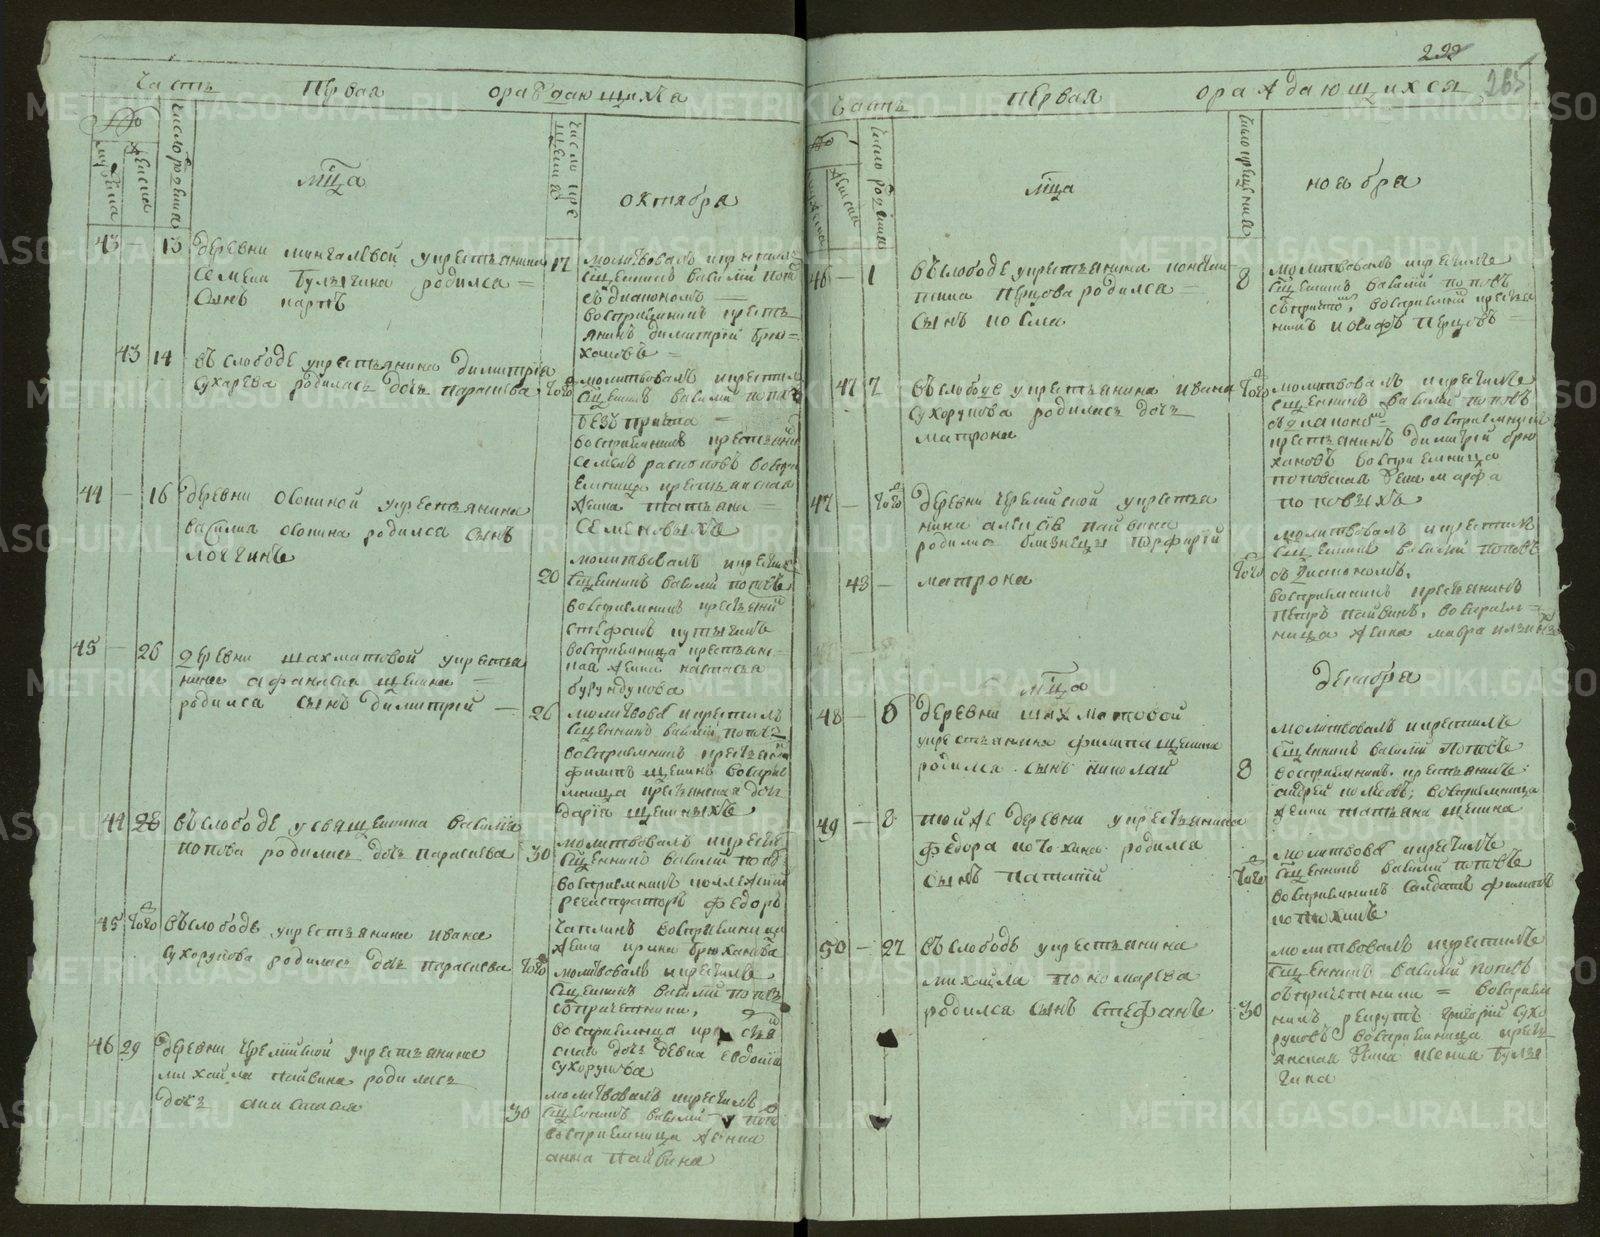 222
265
Часть первая о раждающихса
Мца октября
43 — 13 деревни мингалевой у крестьянина
семена булычина родилса
сынъ карпъ
17 молитвовалъ и крестилъ
сщенникъ василий попо
съ диакономъ
восприемникъ кресть
янинъ димитрий брю
хановъ
43 14 въ слободе у крестьянина димитрия
сухарева родилась дочь параскева
того молитвовалъ и крестил
сщенникъ василий поповъ
безъ причта
восприемникъ крестьяни
семенъ распоповъ воспри
емница крестьянская
жена татьяна
семеновыхъ
44 — 16 деревни осниной у крестьянина
василиа оснина родилса сынъ
логгинъ
20 молитвовалъ и крестил
сщенникъ василий поповъ
восприемникъ крестьяни
стефанъ
восприемница крестьянс
кая жена настасья
бурундукова
45 — 26 деревни шахматовой у крестья
нина афанасиа щекина
родилса сынъ димитрий
26 молитвова и крестилъ
сщенникъ василий поповъ
восприемникъ крестьяни
филипъ щекинъ восприе
мница крестьянская доч
дария щекиныхъ
44 28 въ слободе у священника василия
попова родилась дочь параскева
30 молитвовалъ и крести
сщенникъ василий попо
восприемникъ коллежкий
регистраторъ федоръ
чаплинъ восприемница
жена ирина брюханова
45 того въ слободе у крестьянина ивана
сухорукова родилась дочь параскева
того молитвовалъ и крестилъ
сщенникъ василий поповъ
съ причетники,
восприемница крестья
ская дочь девка евдокия
сухорукова
46 29 деревни черемисской у крестьянина
михаила пайвина родилась
дочь анастасия
30 молитвовалъ и крестилъ
сщенникъ василий попо
восприемница женка
анна пайвина
Часть первая о раждающихся
Мца ноября
46 — 1 въ слободе у крестьянина
перцова родилса
сынъ козма
8 молитвовалъ и крестилъ
сщенникъ василий поповъ
съ причто, восприемник крестья
нинъ иосифъ перцовъ
47 7 въ слободе у крестьянина ивана
сухорукова родилась дочь
матрона
того молитвовалъ и крестилъ
сщенникъ василий поповъ
съ диакономъ восприемникъ
крестьянинъ димитрий брю
хановъ восприемница
поповская жена марфа
поповыхъ
47 — того деревни черемисской у крестья
нина алексея пайвина
родились близнецы порфирий
48 — матрона
того молитвовалъ и крестилъ
сщенникъ василий поповъ
съ диакономъ,
восприемникъ крестьянинъ
петръ пайвинъ, восприем
ница женка мавра
Мца декабря
48 — 6 деревни шахматовой
у крестьянина филипа щекина
родилса сынъ николай
8 молитвовалъ и крестилъ
сщенникъ василий поповъ
восприемникъ крестьянинъ
андрей поповъ, восприемница
женка татьяна щекина
49 — 8 той же деревни у крестьянина
федора потохина родилса
сынъ потапий
того молитвова и крестилъ
сщенникъ василий поповъ
восприемникъ салдатъ филипъ
потохинъ
50 — 27 въ слободе у крестьянина
михаила пономарева
родилса сынъ стефанъ
30 молитвовалъ и крестилъ
сщенникъ василий поповъ
съ причетники восприем
никъ рекрутъ григорий сухо
руковъ восприемница кресть
янская жена ксения булы
чина
METRIKI.GASO-URAL.RU